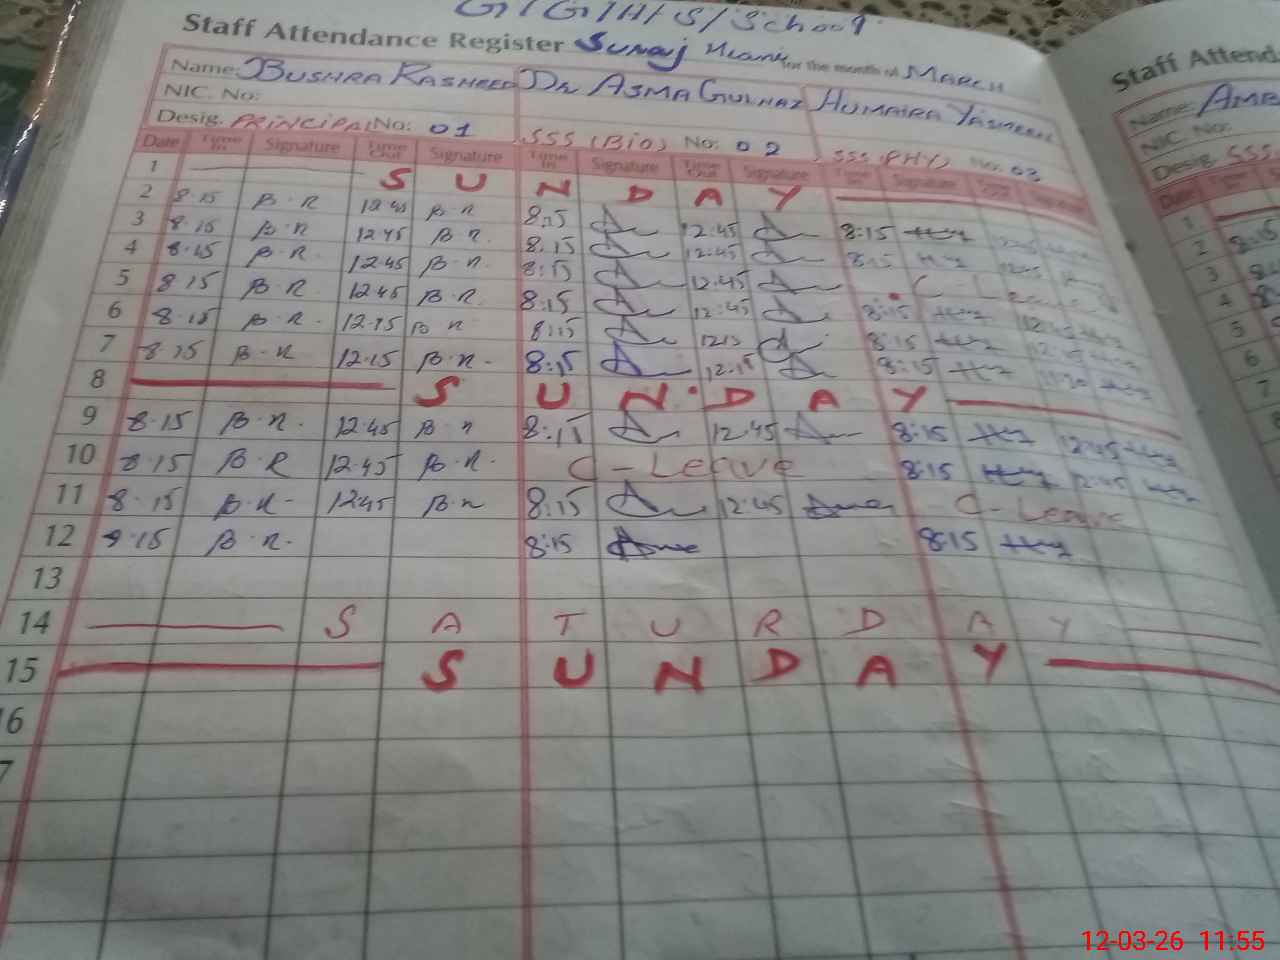 G/G/H/S/School
Staff Attendance Register Suraj Miani for the month of MARCH
Name: BUSHRA RASHEED DR ASMA GULNAZ HUMAIRA YASMEEN
NIC. No:
Desig. PRINCIPAL No: 01 SSS (BIO) No: 02 SSS (PHY) No. 03
Date Time In Signature Time Out Signature Time In Signature Time Out Signature Time In Signature
1 SUNDAY
2 8.15 B.R 12.45 B.R 8:15 12:45 8:15
3 8.15 B.R 12.45 B.R. 8.15 12:45 8:15
4 8.15 B.R. 12.45 B.R. 8:15 12:45 C-Leave
5 8.15 B.R 12.45 B.R. 8:15 12:45 8:15
6 8.15 B.R. 12.15 B.R 8:15 1215 8:15
7 8.15 B.R 12.15 B.R. 8:15 12.15 8:15
8 SUNDAY
9 8.15 B.R. 12.45 B.R 8:15 12:45 8:15 12:45
10 8.15 B.R 12.45 B.R. C-Leave 8:15 12:45
11 8.15 B.R. 12.45 B.R 8:15 12:45 C-Leave
12 8.15 B.R. 8:15 8:15
13
14 SATURDAY
15 SUNDAY
16
7
Staff Attend
Name: AMB
NIC. No:
Desig. SSS
Date
1
2 8:15
3
4
5
6
7
12-03-26 11:55